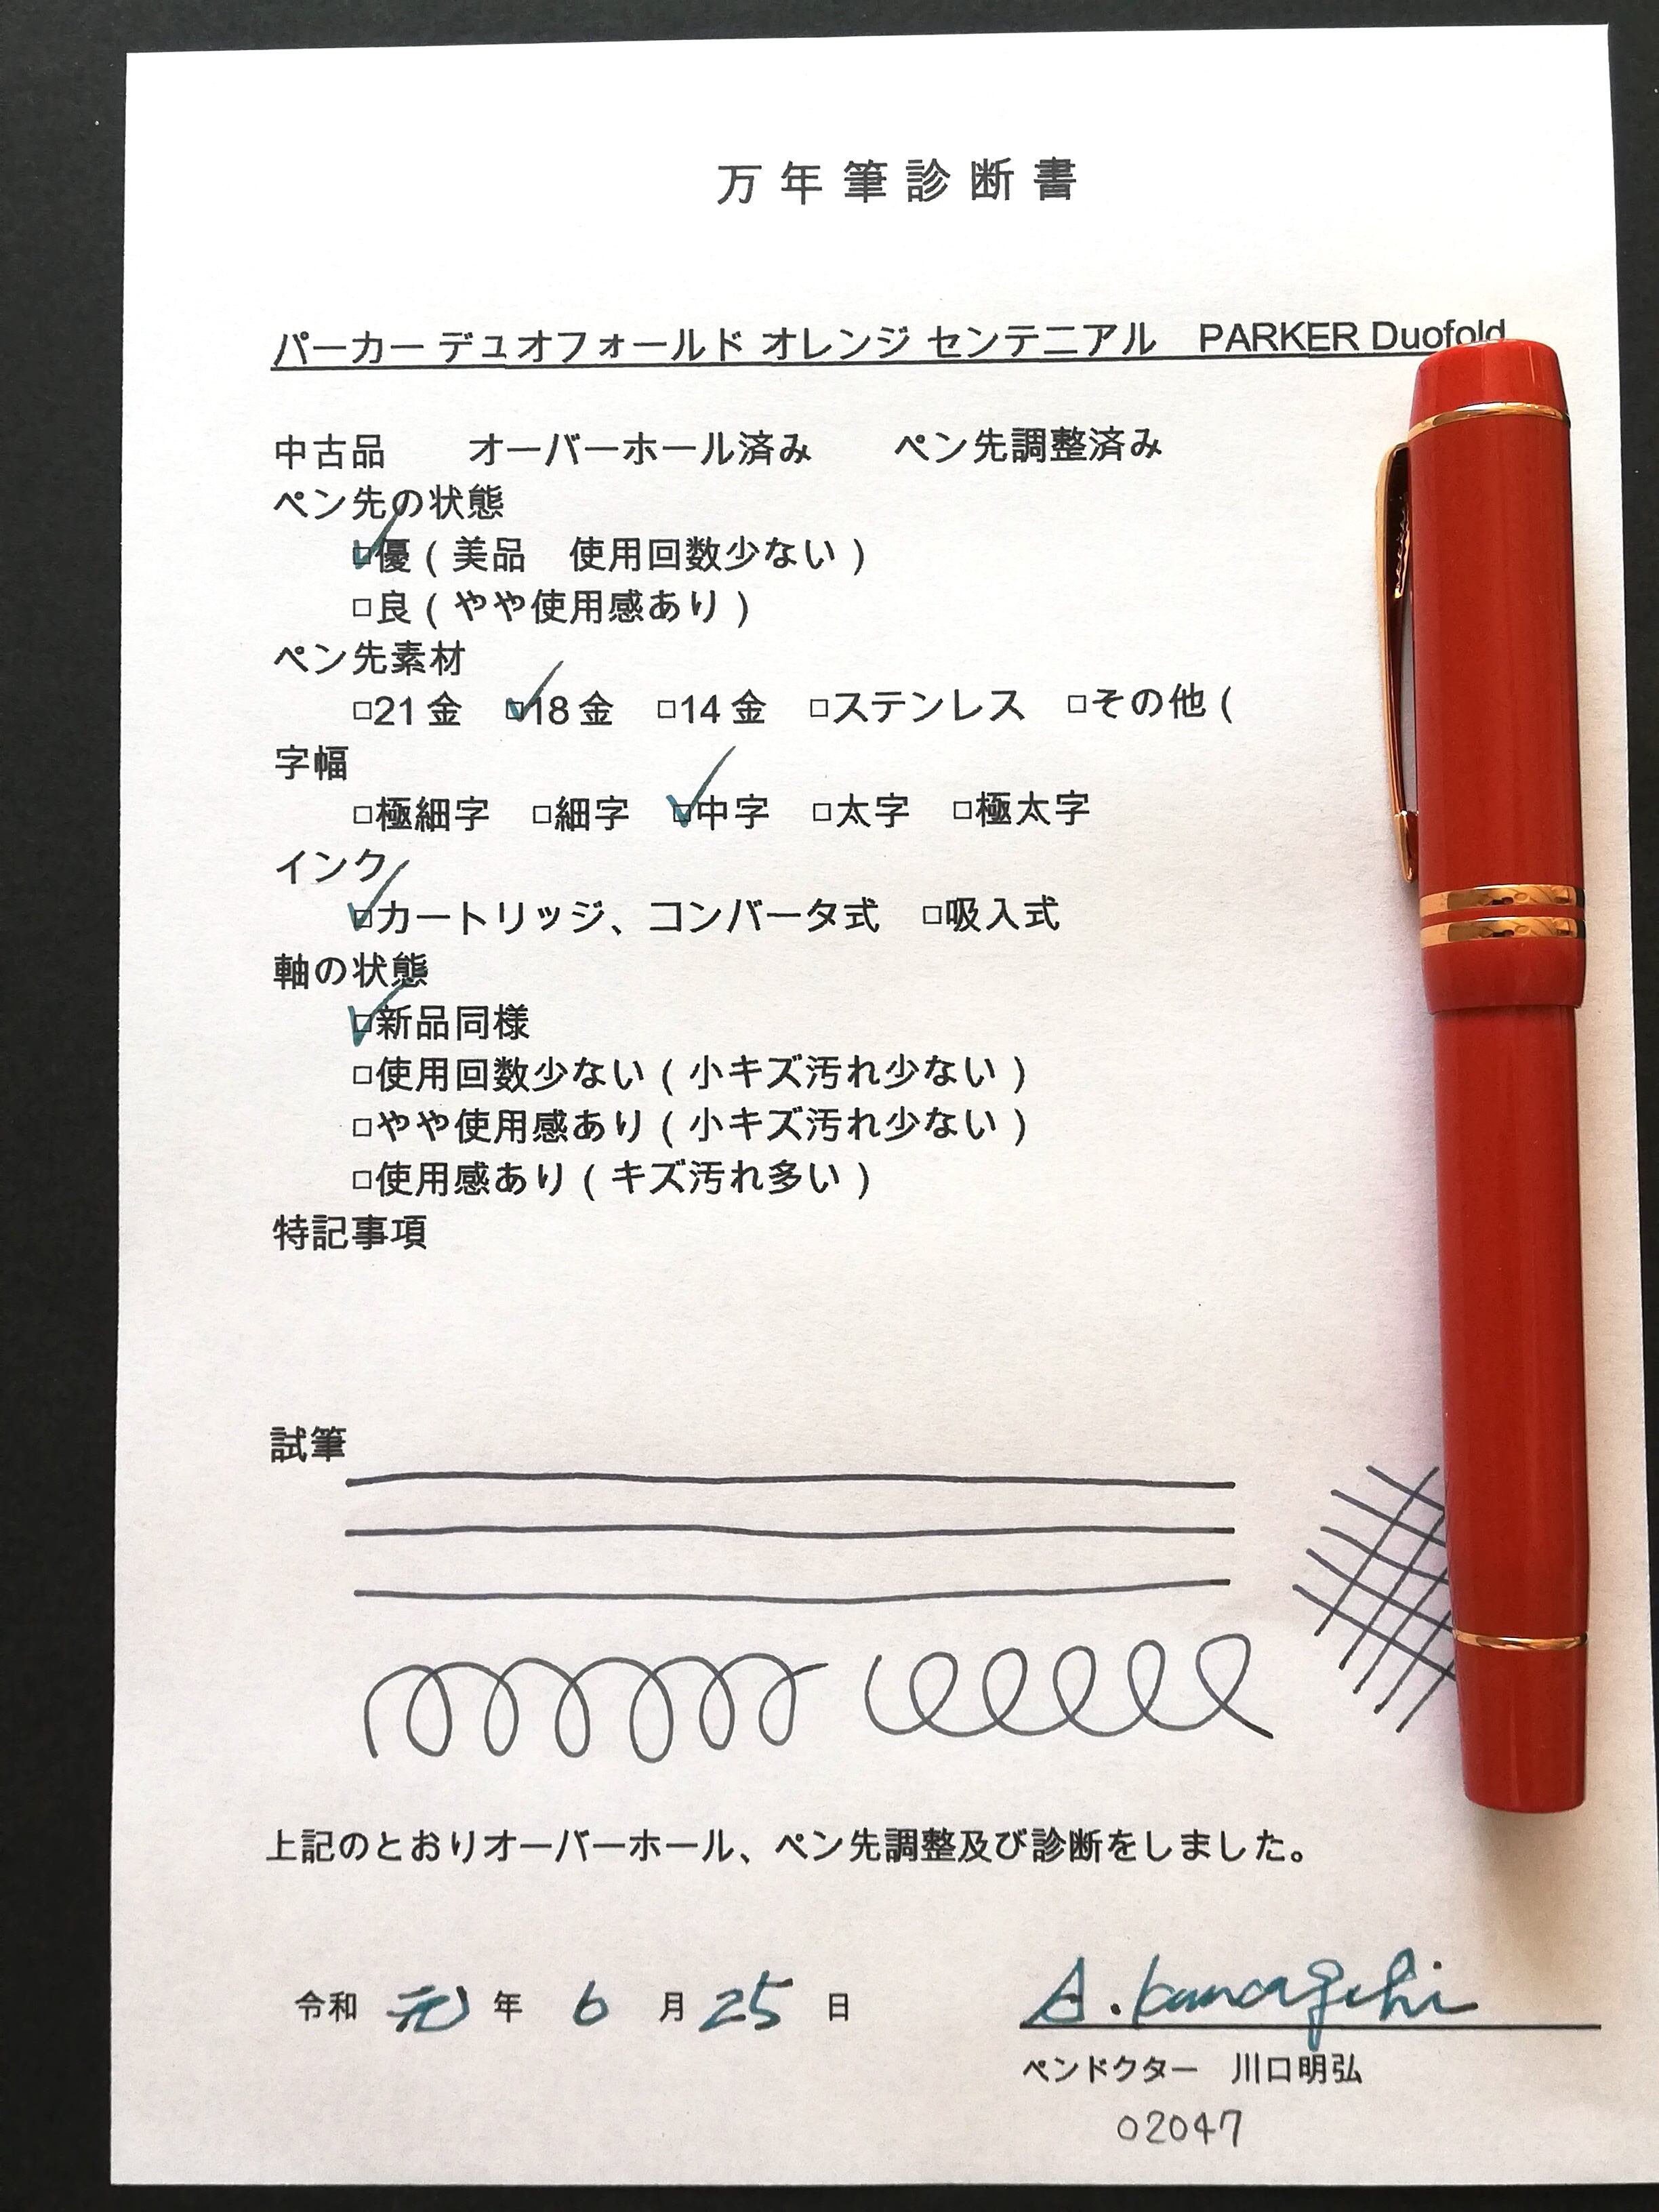 万年筆診断書
パーカー デュオフォールド オレンジ センテニアル　PARKER Duofold
中古品　　オーバーホール済み　　ペン先調整済み
ペン先の状態
☑優（美品　使用回数少ない）
□良（やや使用感あり）
ペン先素材
□21金　☑18金　□14金　□ステンレス　□その他（
字幅
□極細字　□細字　☑中字　□太字　□極太字
インク
☑カートリッジ、コンバータ式　□吸入式
軸の状態
☑新品同様
□使用回数少ない（小キズ汚れ少ない）
□やや使用感あり（小キズ汚れ少ない）
□使用感あり（キズ汚れ多い）
特記事項
試筆
上記のとおりオーバーホール、ペン先調整及び診断をしました。
令和 元 年 6 月 25 日
A. Kawaguchi
ペンドクター　川口明弘
02047